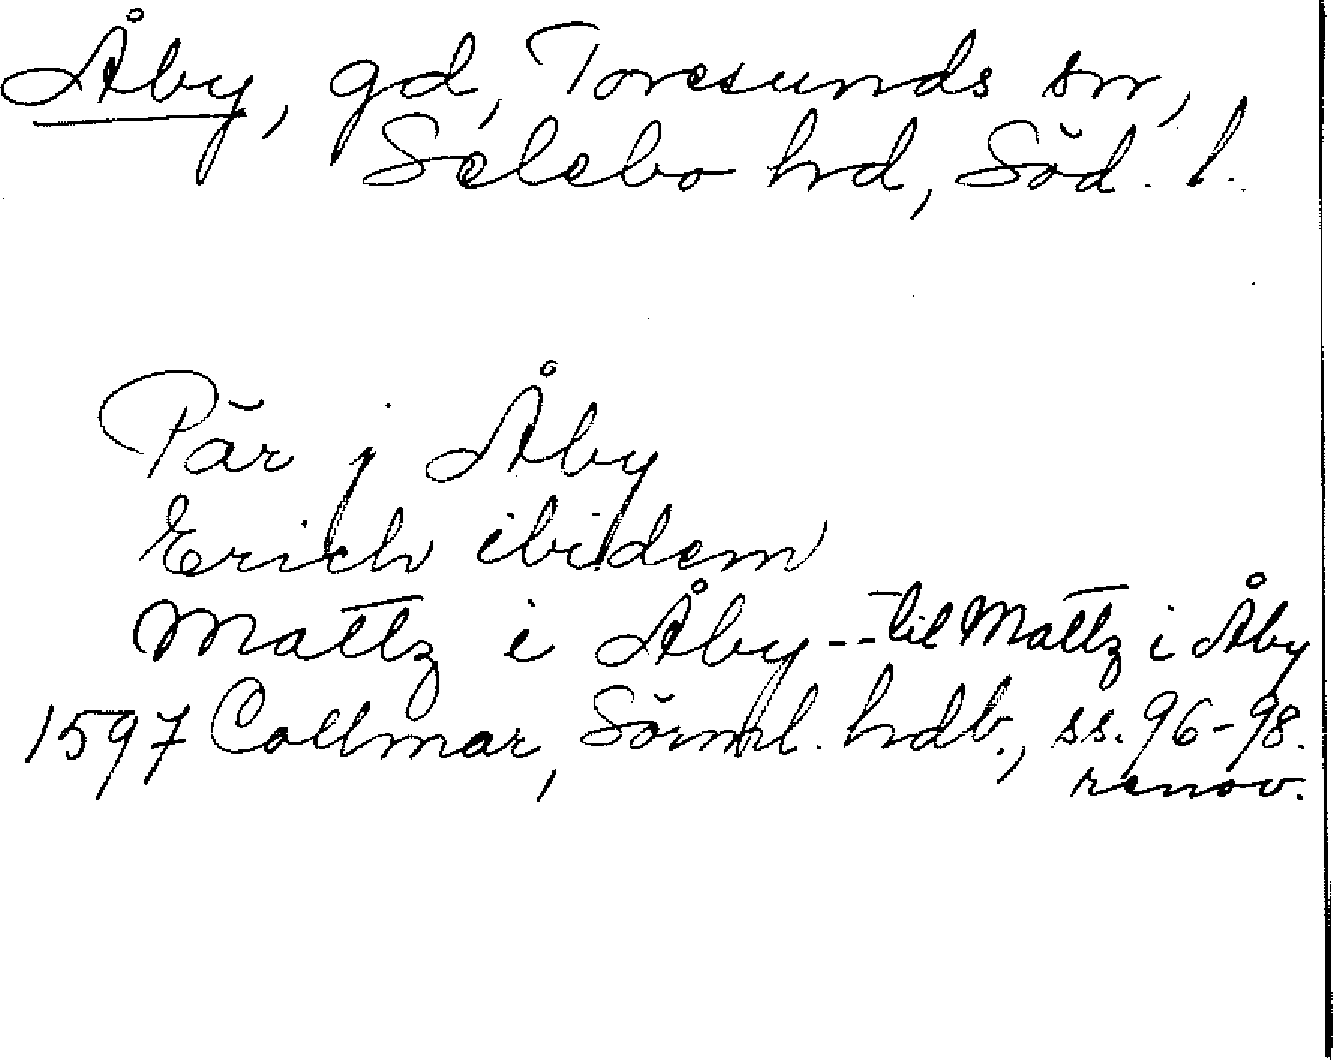 Åby, gd, Toresunds sn,
Selebo hd, Söd. l.
Pär j Åby
Erich ibidem
Mattz i Åby -- til Mattz i Åby
1597 Collmar, Sörml. hdb., ss. 96-98.
renov.